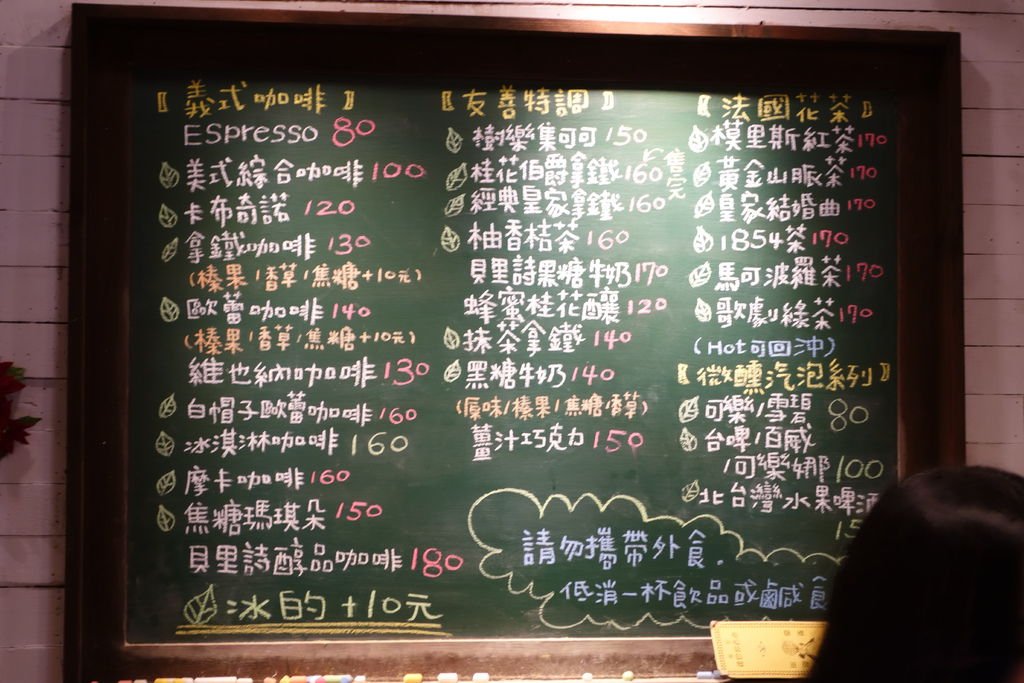 〖義式咖啡〗
ESpresso 80
美式綜合咖啡 100
卡布奇諾 120
拿鐵咖啡 130
(榛果/香草/焦糖+10元)
歐蕾咖啡 140
(榛果/香草/焦糖+10元)
維也納咖啡 130
白帽子歐蕾咖啡 160
冰淇淋咖啡 160
摩卡咖啡 160
焦糖瑪琪朵 150
貝里詩醇品咖啡 180
冰的+10元
〖友善特調〗
樹樂集可可 150
桂花伯爵拿鐵 160
售完
經典皇家拿鐵 160
柚香桔茶 160
貝里詩黑糖牛奶 170
蜂蜜桂花釀 120
抹茶拿鐵 140
黑糖牛奶 140
(原味/榛果/焦糖/香草)
薑汁巧克力 150
〖法國花茶〗
模里斯紅茶 170
黃金山脈茶 170
皇家結婚曲 170
1854茶 170
馬可波羅茶 170
歌劇綠茶 170
(Hot可回沖)
〖微醺汽泡系列〗
可樂/雪碧 80
台啤/百威
/可樂娜 100
北台灣水果啤酒
請勿攜帶外食.
低消一杯飲品或鹹食